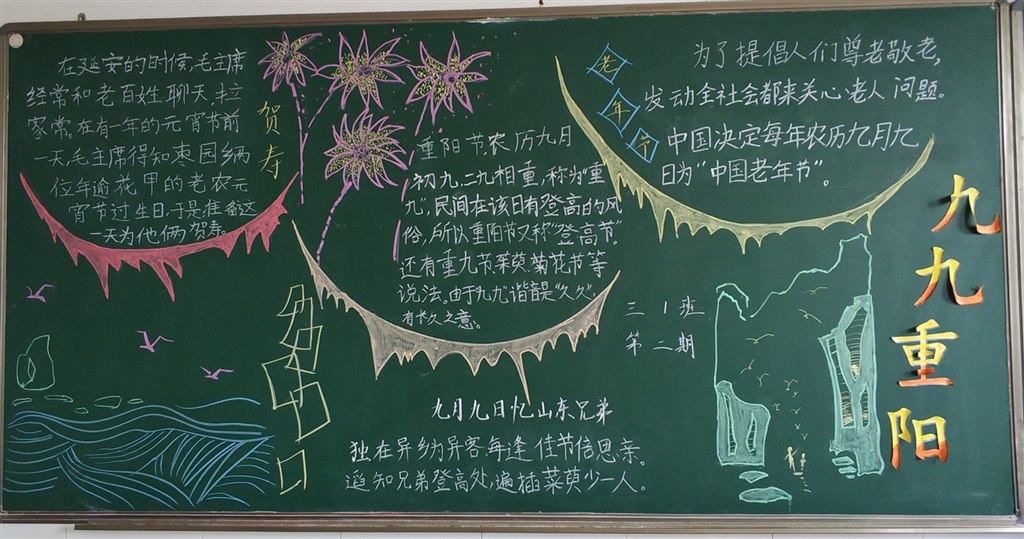 在延安的时候,毛主席
经常和老百姓聊天,拉
家常,在有一年的元宵节前
一天,毛主席得知枣园乡两
位年逾花甲的老农元
宵节过生日,于是准备这
一天为他俩贺寿。
贺寿
重阳节,农历九月
初九,二九相重,称为“重
九”,民间在该日有登高的风
俗,所以重阳节又称“登高节”。
还有重九节茱萸、菊花节等
说法。由于九九谐音是“久久”,
有长久之意。
老年节
为了提倡人们尊老敬老,
发动全社会都来关心老人问题。
中国决定每年农历九月九
日为“中国老年节”。
三 1班
第二期
九月九日忆山东兄弟
独在异乡为异客,每逢佳节倍思亲。
遥知兄弟登高处,遍插茱萸少一人。
九九重阳